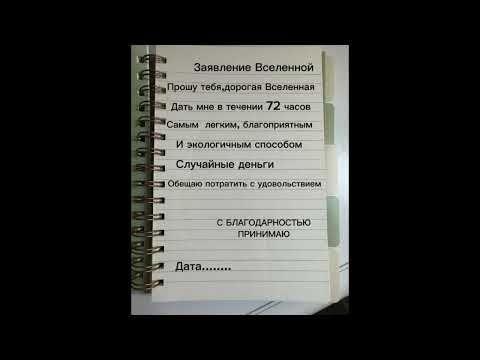 Заявление Вселенной
Прошу тебя,дорогая Вселенная
Дать мне в течении 72 часов
Самым легким, благоприятным
И экологичным способом
Случайные деньги
Обещаю потратить с удовольствием
С БЛАГОДАРНОСТЬЮ
ПРИНИМАЮ
Дата........